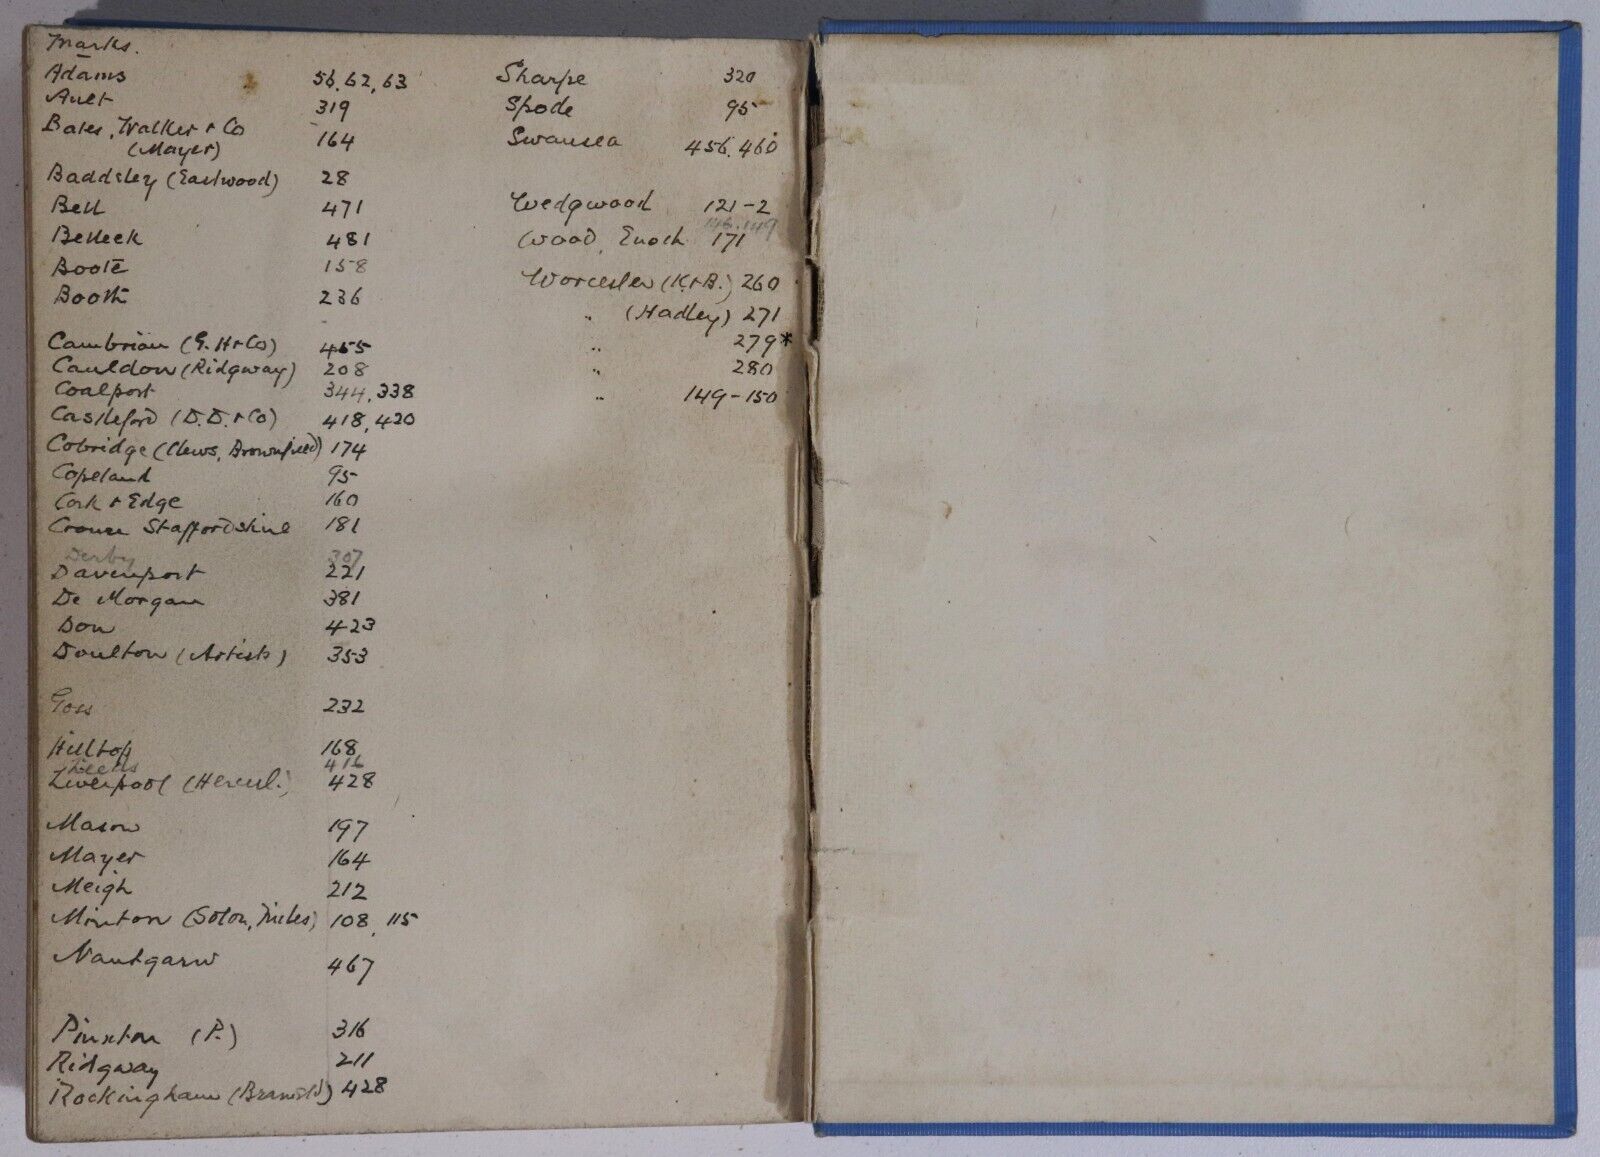 Marks.
Adams 56, 62, 63
Ault 319
Bates, Walker + Co
(Mayer) 164
Baddeley (Eastwood) 28
Bell 471
Belleek 481
Boote 158
Booth 236
Cambrian (G. H + Co) 455
Cauldon (Ridgway) 208
Coalport 344, 338
Castleford (D.D. + Co) 418, 420
Cobridge (Clews, Brownfield) 174
Copeland 95
Cork + Edge 160
Crown Staffordshire 181
Derby 307
Davenport 221
De Morgan 381
Don 423
Doulton (Artists) 353
Goss 232
Hilltop 168
Leeds 416
Liverpool (Hercul.) 428
Mason 197
Mayer 164
Meigh 212
Minton (Solon, Tiles) 108, 115
Nantgarw 467
Pinxton (P.) 316
Ridgway 211
Rockingham (Brameld) 428
Sharpe 320
Spode 95
Swansea 456, 460
Wedgwood 121-2
146.149
Wood, Enoch 171
Worcester (K+B.) 260
" (Hadley) 271
" 279*
" 280
" 149-150